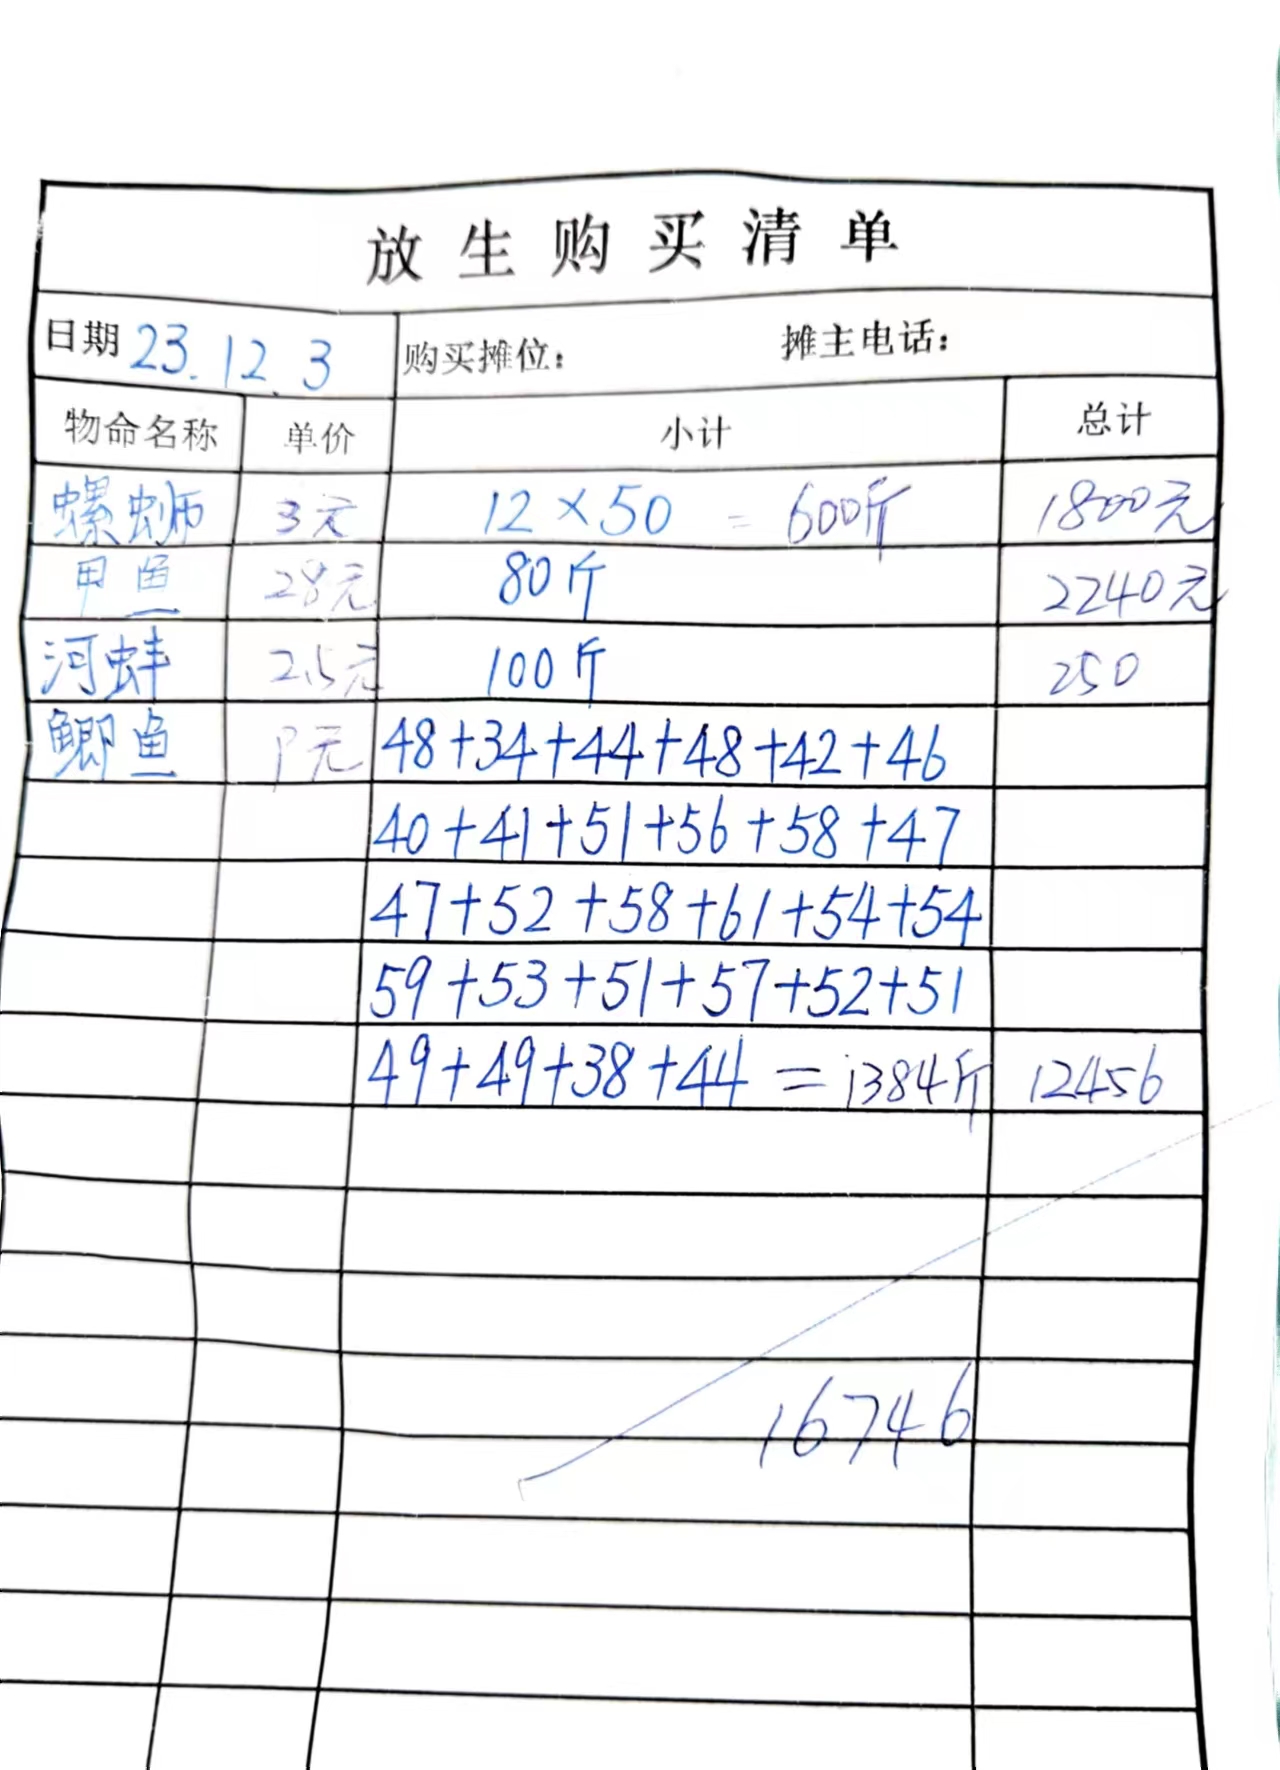 放生购买清单
日期 23.12.3 购买摊位： 摊主电话：
物命名称 单价 小计 总计
螺蛳 3元 12×50 = 600斤 1800元
甲鱼 28元 80斤 2240元
河蚌 2.5元 100斤 250
鲫鱼 9元 48+34+44+48+42+46
40+41+51+56+58+47
47+52+58+61+54+54
59+53+51+57+52+51
49+49+38+44 = 1384斤 12456
16746